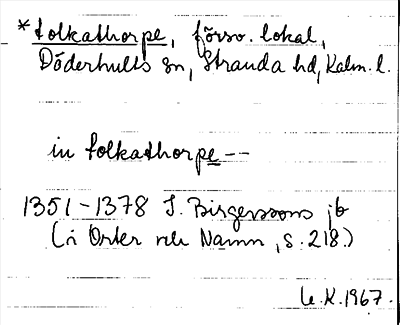 *folkathorpe, försv. lokal,
Döderhults sn, Stranda hd, Kalm. l.
in folkathorpe --
1351-1378 S. Birgerssons jb
(i Orter och Namn, s. 218.)
1967.